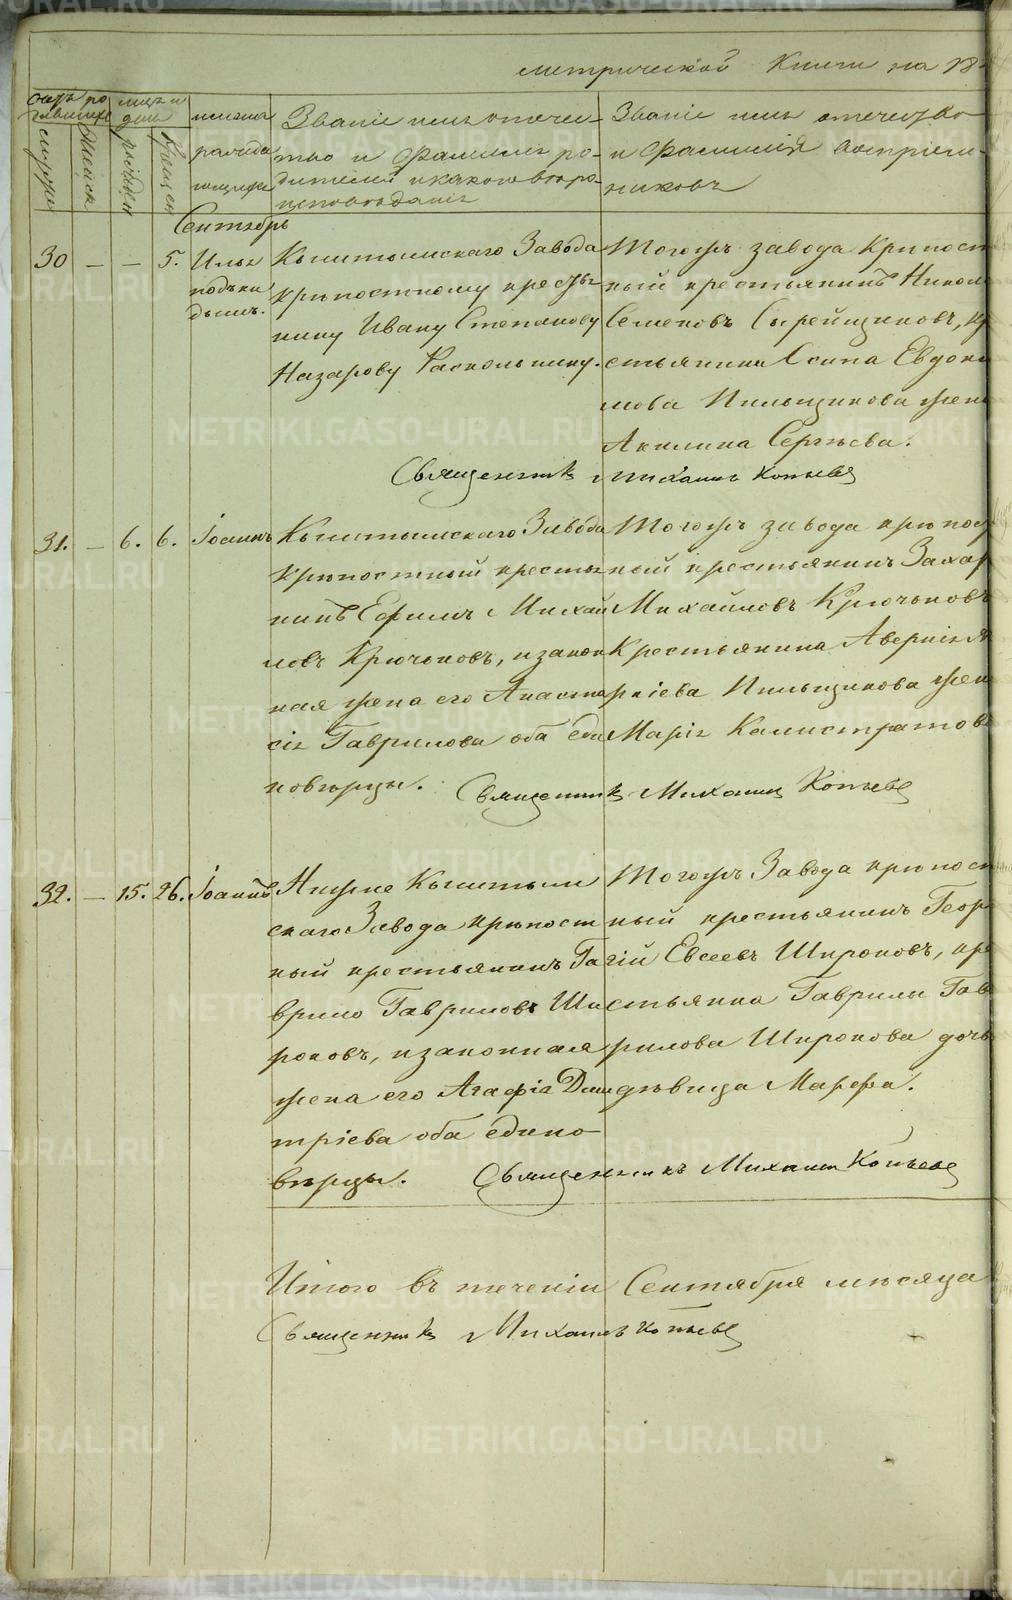 метрической Книги на 18
счетъ ро
дившихс
мужес
женск
мсць и
день
рожден
Крещен
имена
раждa
ющихс
Званіе имя отече-
тво и Фамилия ро-
дителей и какого веро-
исповеданія
Званіе имя отечество
и Фамилия воспріем-
никовъ
Сентябрь
30 — — 5. Илья
подки
дышъ.
Кыштымскаго Завода
крѣпостному крестья
нину Ивану Степанову
Назарову Раскольнику.
Тогожъ завода Крѣпост
ный крестьянинъ Никол
Семеновъ Сырейщиковъ, кр
стьянина Осипа Евдоки
мова Пильщикова жена
Акилина Сергѣева.
Священникъ Михаилъ Копьевъ
31. — 6. 6. Іоаннъ
Кыштымскаго Завода
крѣпостный крестья
нинъ Ефимъ Михай
ловъ Крючковъ, и закон
ная жена его Анаста
сія Гаврилова оба еди
новѣрцы.
Тогожъ завода крѣпос
ный крестьянинъ Захар
Михайловъ Крючковъ
Крестьянина Аверкія А
ркіева Пильщикова жен
Марія Калистратов
Священникъ Михаилъ Копьевъ
32. — 15. 26. Іоаннъ
Нижне Кыштым
скаго Завода крѣпост
ный крестьянинъ Га
врило Гавриловъ Ши
роковъ, и законная
жена его Агафія Дми
тріева оба едино
вѣрцы.
Тогожъ Завода крѣпост
ный крестьянинъ Геор
гій Евсеевъ Широковъ, кре
стьянина Гаврилы Гав
рилова Широкова дочь
дѣвица Марфа.
Священникъ Михаилъ Копьевъ
Итого въ теченіи Сентября мѣсяца
Священникъ Михаилъ Копьевъ
METRIKI.GASO-URAL.RU